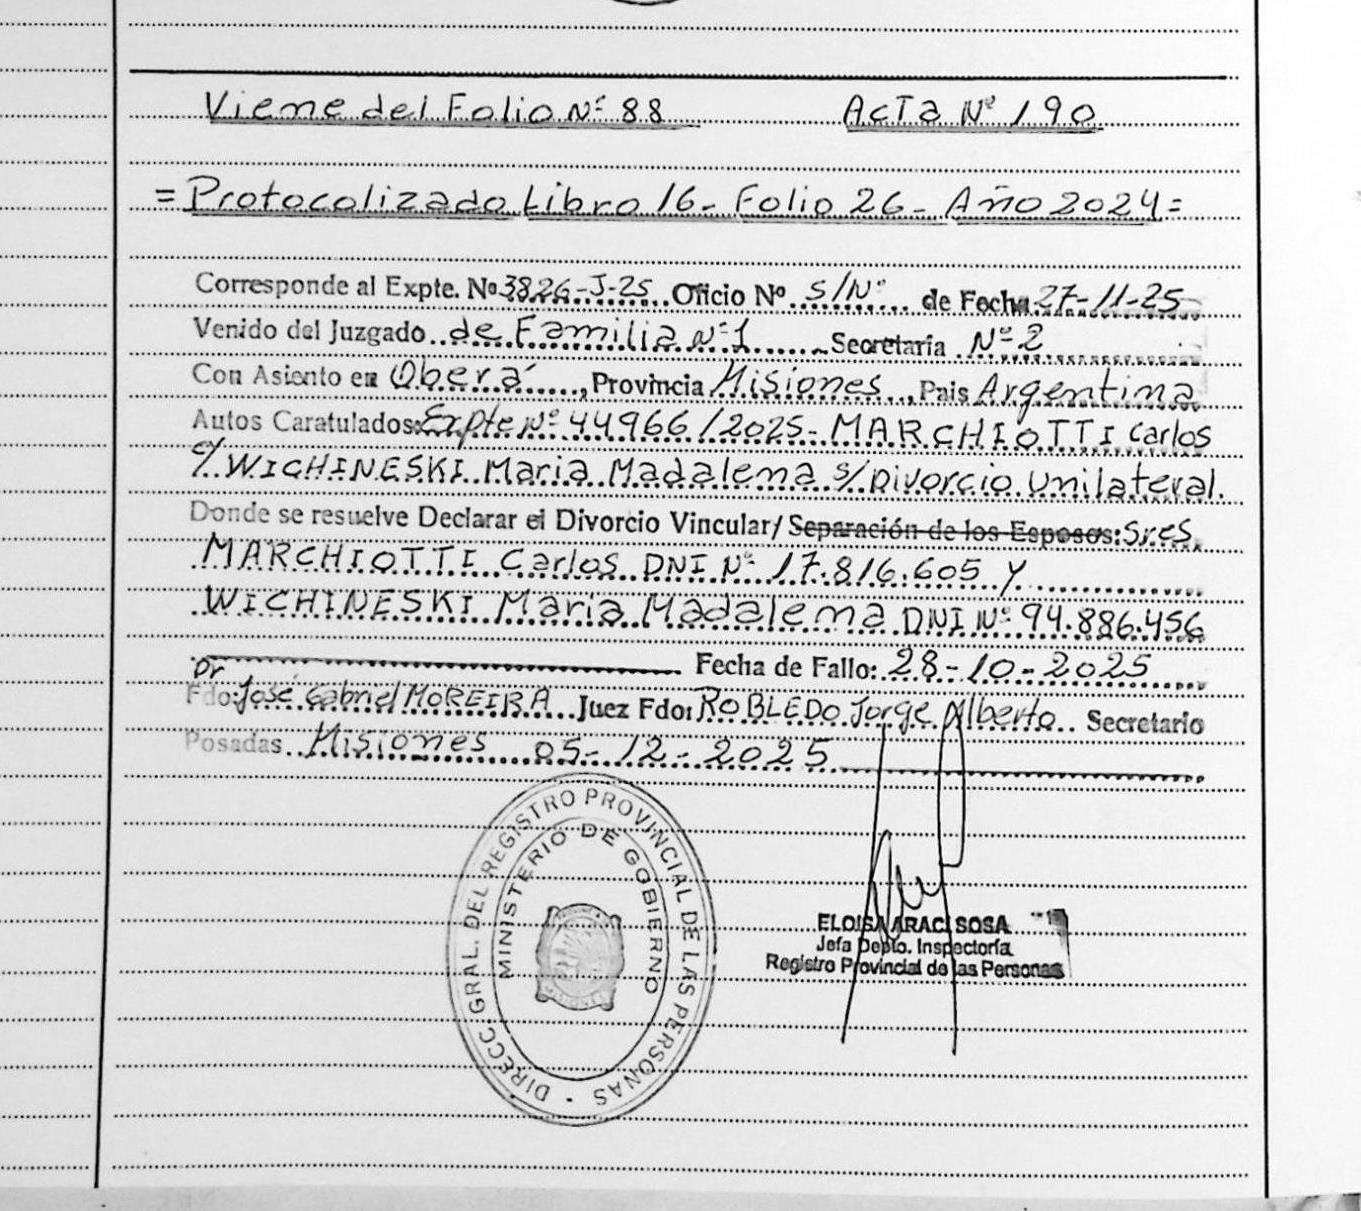 Viene del Folio Nº 88 ACTA Nº 190
= Protocolizado Libro 16 - Folio 26 - Año 2024 =
Corresponde al Expte. Nº 3826-J-25 Oficio Nº S/Nº de Fecha 27-11-25
Venido del Juzgado de Familia Nº 1 Secretaría Nº 2
Con Asiento en Oberá, Provincia Misiones, Pais Argentina
Autos Caratulados: Expte Nº 44966/2025- MARCHIOTTI Carlos
c/ WICHINESKI Maria Madalema s/ Divorcio Unilateral.
Donde se resuelve Declarar el Divorcio Vincular/ Separación de los Esposos: Sres.
MARCHIOTTI Carlos DNI Nº 17.816.605 y
WICHINESKI Maria Madalema DNI Nº 94.886.456
Fecha de Fallo: 28-10-2025
Dr
Fdo: José Gabriel MOREIRA Juez Fdo: ROBLEDO Jorge Alberto Secretario
Posadas Misiones 05-12-2025
DIRECC. GRAL. DEL REGISTRO PROVINCIAL DE LAS PERSONAS
MINISTERIO DE GOBIERNO
MISIONES
ELOISA ARACI SOSA
Jefa Depto. Inspectoría
Registro Provincial de las Personas